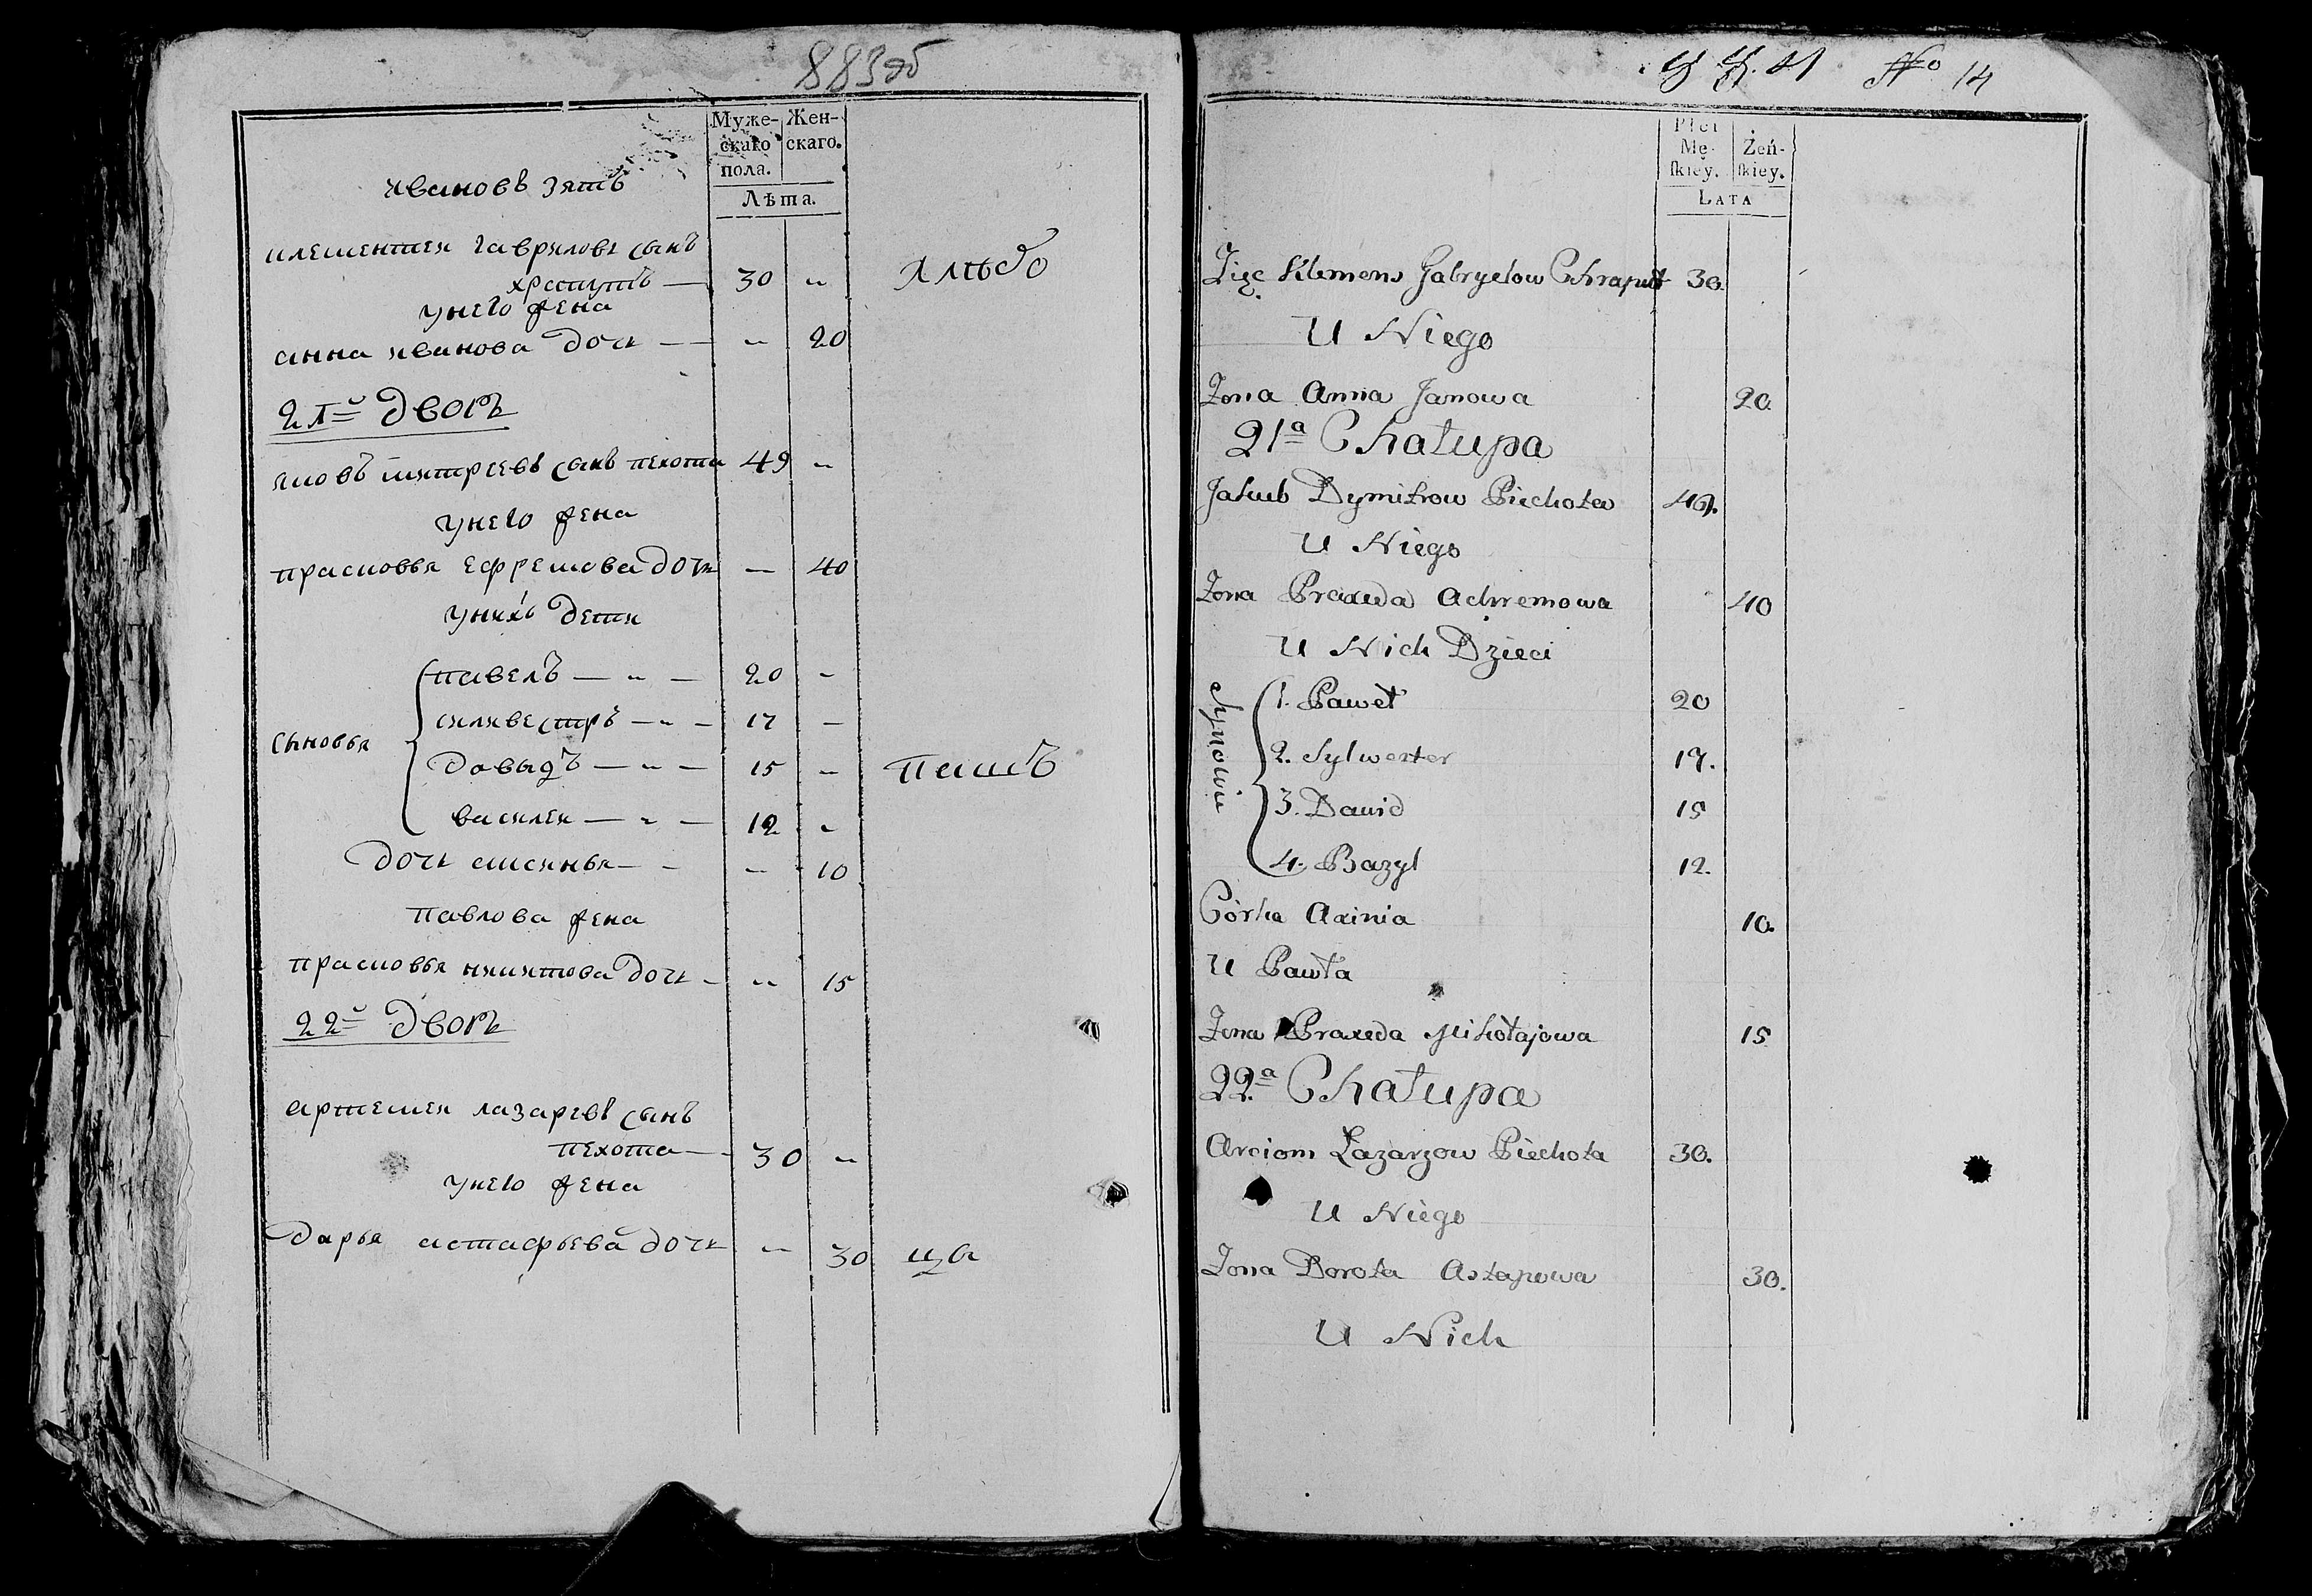 883об
Муже-
скаго
пола.
Жен-
скаго.
Лѣта.
ивановъ зять
климентеи гавриловъ сынъ
храпутъ — 30 „
унего жена
анна иванова дочь — „ 20
21й дворъ
яковъ митреевъ сынъ пехота 49 „
унего жена
прасковья ефремова дочь — 40
унихъ дети
сыновья
павелъ — „ — 20 „
силивестръ — „ — 17 —
довыдъ — „ — 15 „
василеи — „ — 12 „
дочь аксинья — „ — 10
павлова жена
прасковья никитова дочь — „ 15
22й дворъ
артемеи лазаревъ сынъ
пехота — 30 „
унего жена
дарья астафьева дочь „ 30
No 14
Płci
Mę-
skiey.
Żeń-
skiey.
LATA
Zięc Klemens Gabryelow Chraput 30.
U Niego
Zona Anna Janowa 20.
21a Chałupa
Jakub Dymitrow Piechota 49.
U Niego
Zona Praxeda Achremowa 40
U Nich Dzieci
Synowie
1. Paweł 20
2. Sylwester 17.
3. Dawid 15
4. Bazyl 12.
Córka Axinia 10.
U Pawła
Zona Praxeda Mikołajowa 15
22a Chałupa
Arciom Łazarzow Piechota 30.
U Niego
Zona Dorota Astapowa 30.
U Nich